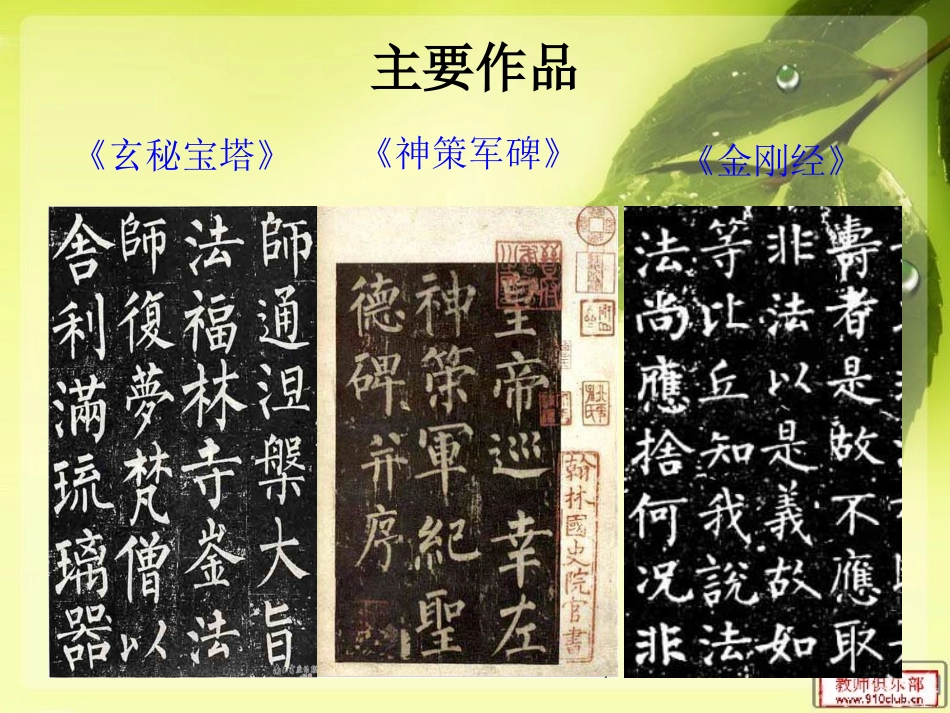 主要作品
《玄秘宝塔》
《神策军碑》
《金刚经》
師通涅槃大旨
法福林寺崟法
師復夢梵僧以
舎利滿琉璃器
皇帝巡幸左
神策軍紀聖
德碑并序
翰林國史院官書
壽者是故不應取
非法以是義故如
等比丘知我說法
法尚應捨何況非
教师俱乐部
www.910club.cn